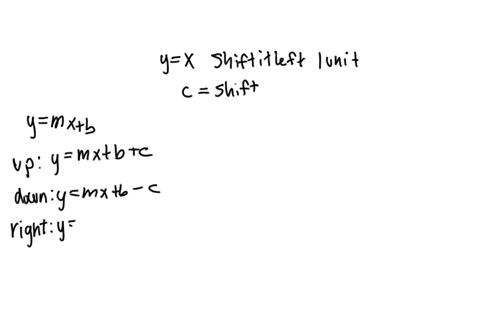 y=x shift it left 1 unit
c = shift
y=mx+b
up: y=mx+b+c
down: y=mx+b-c
right: y=